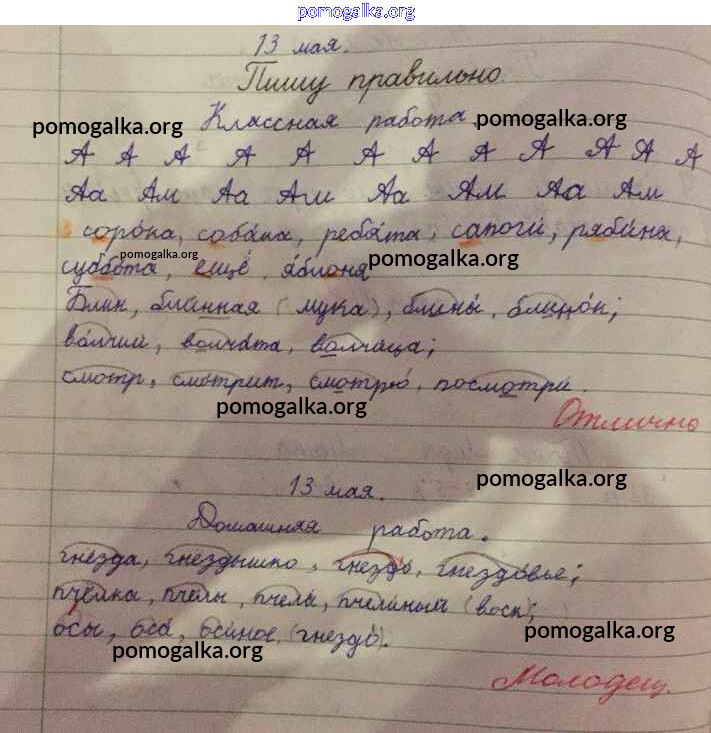 pomogalka.org
13 мая.
Пишу правильно
Классная работа.
pomogalka.org pomogalka.org
А А А А А А А А А А А А
Аа Ам Аа Ам Аа Ам Аа Ам
сорока, собака, ребята, сапоги, рябина,
pomogalka.org
суббота, ещё, яблоня
pomogalka.org
Блин, блинная (мука), блины, блинок;
волчий, волчата, волчица;
смотр, смотрит, смотрю, посмотри.
pomogalka.org
Отлично
13 мая.
pomogalka.org
Домашняя работа.
гнёзда, гнёздышко, гнездо, гнездовье;
пчёлка, пчёлы, пчела, пчелиный (воск);
осы, оса, осиное (гнездо).
pomogalka.org
pomogalka.org
Молодец.